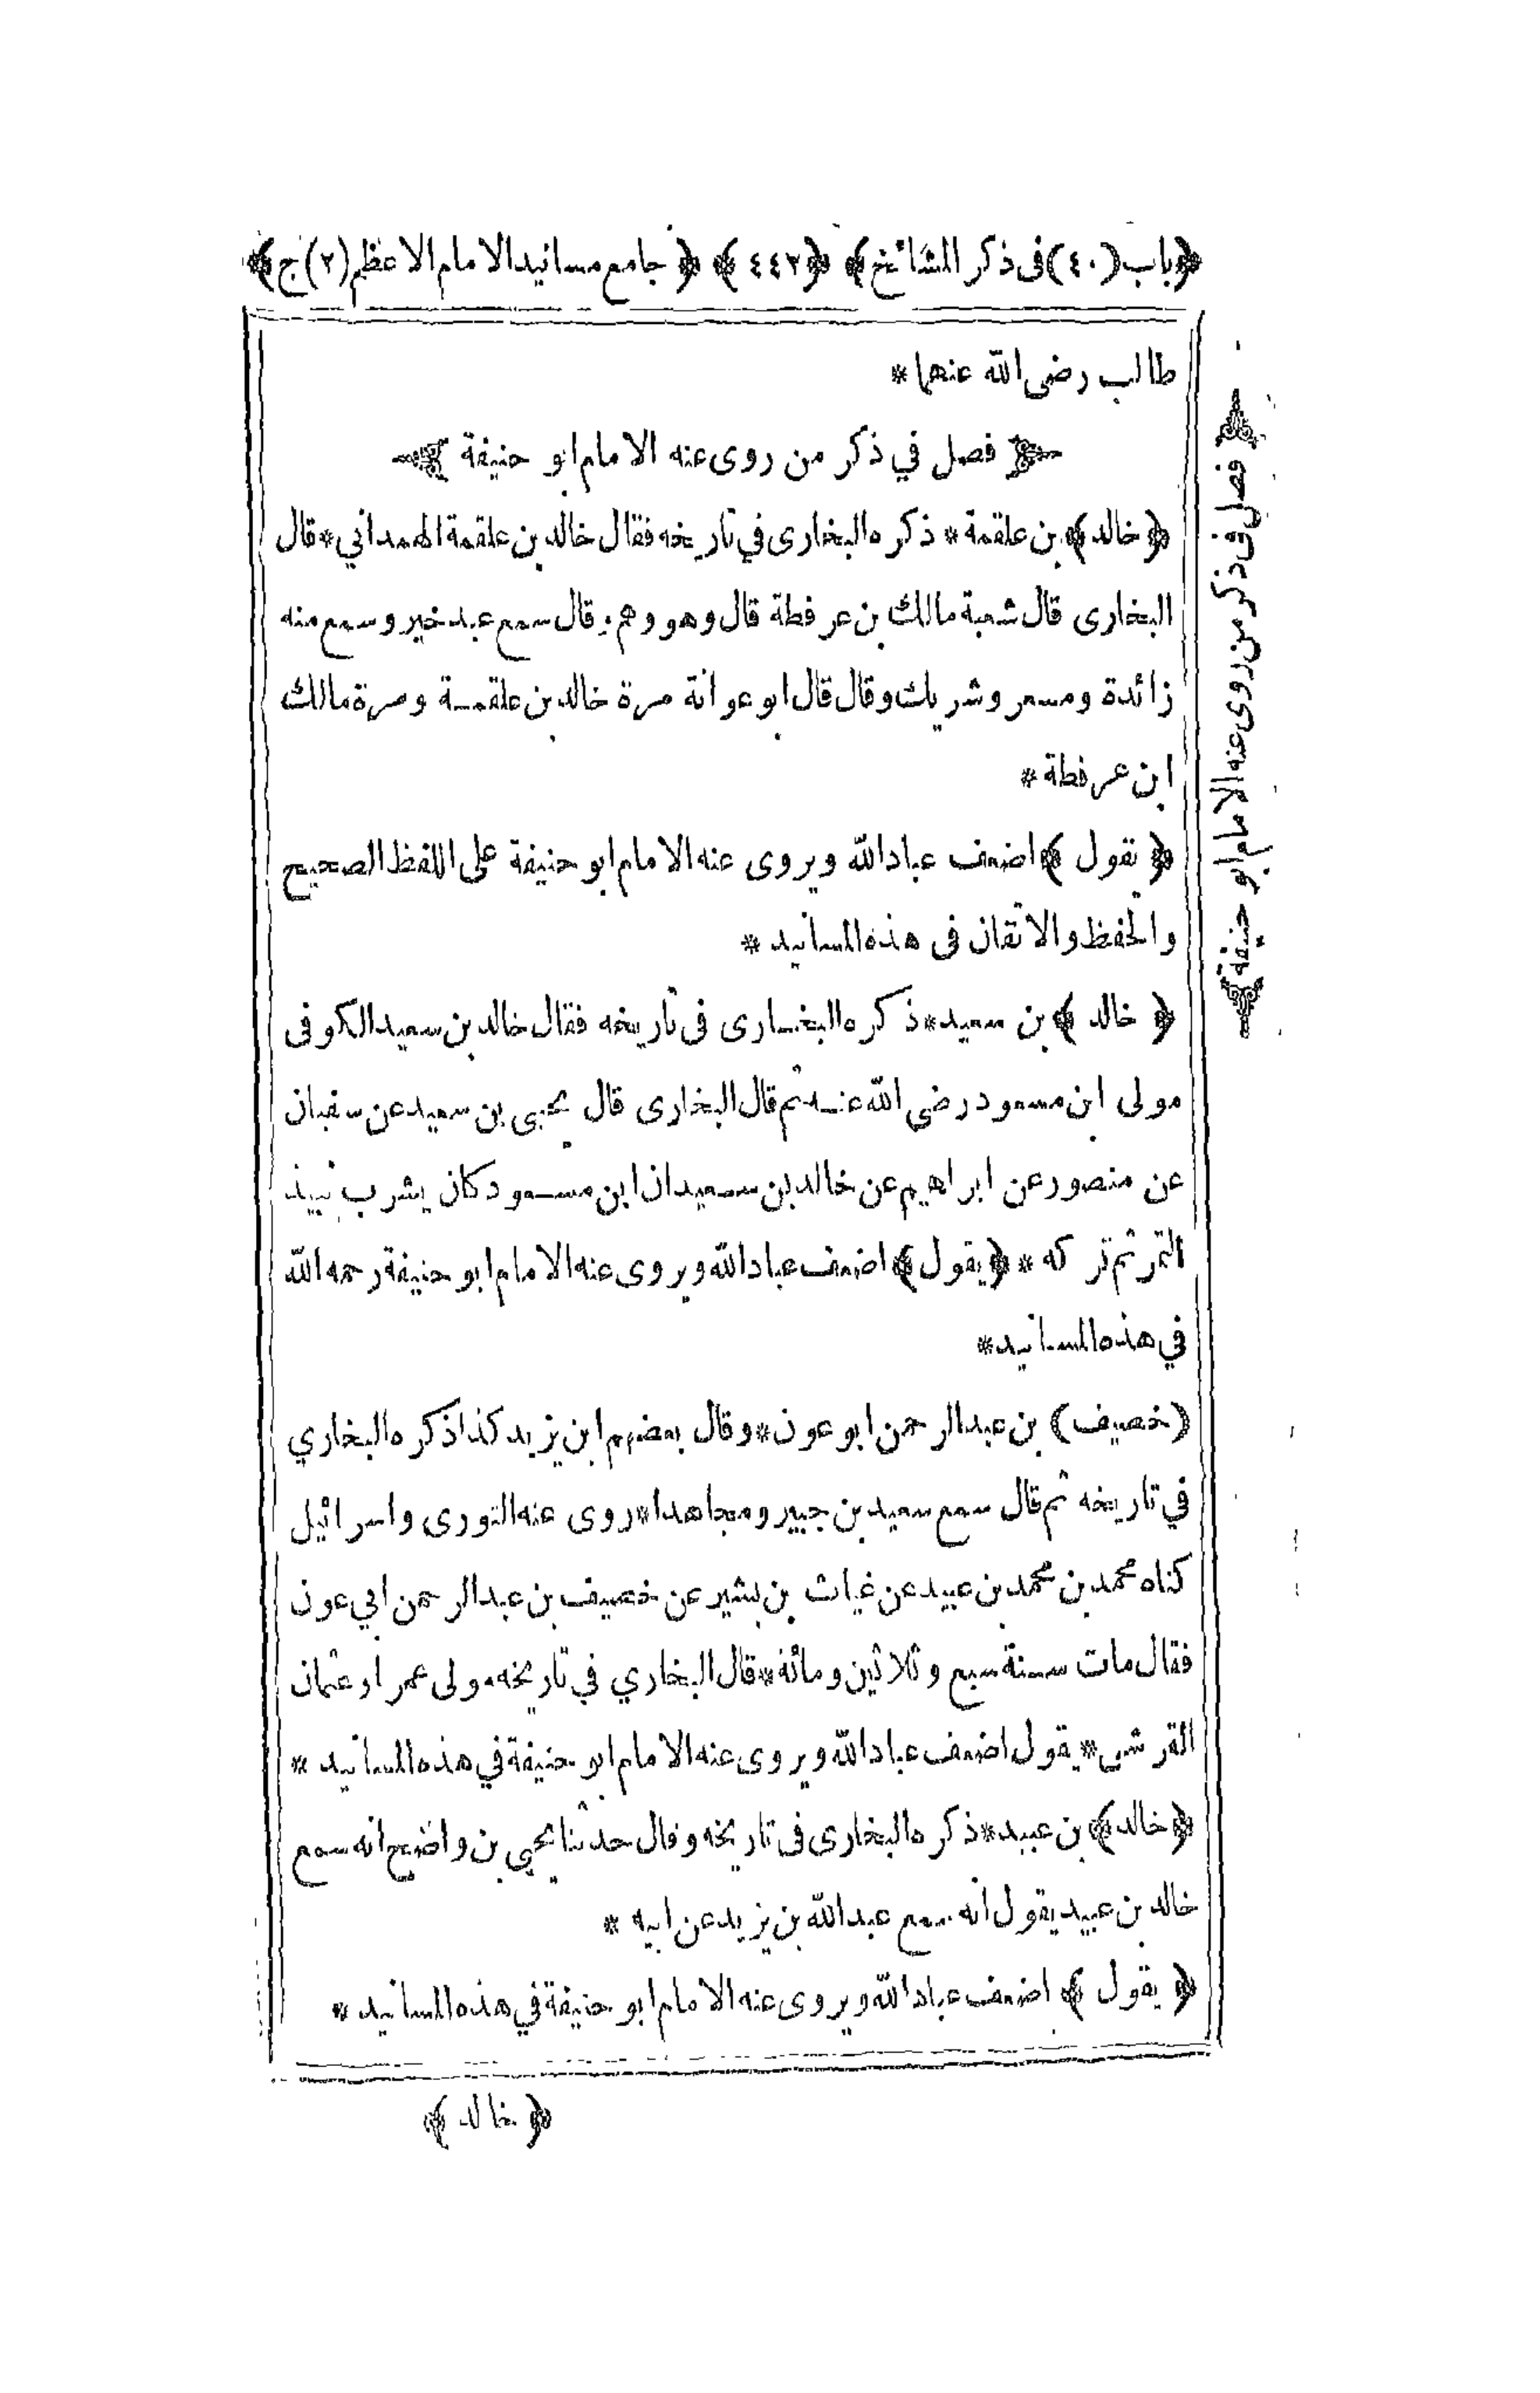 ﴿باب (٤٠) فى ذكر المشائخ﴾ ﴿٤٤٢﴾ ﴿جامع مسانيد الامام الاعظم (٢) ج﴾
طالب رضى الله عنهما *
فصل في ذكر من روى عنه الامام ابو حنيفة
﴿خالد﴾ بن علقمة * ذكره البخارى في تاريخه فقال خالد بن علقمة الهمداني * قال
البخارى قال شعبة مالك بن عرفطة قال وهو وهم * قال سمع عبد خير وسمع منه
زائدة ومسعر وشريك وقال قال ابو عوانة مرة خالد بن علقمة ومرة مالك
ابن عرفطة *
﴿يقول﴾ اضعف عباد الله ويروى عنه الامام ابو حنيفة على اللفظ الصحيح
والحفظ والاتقان فى هذه المسانيد *
﴿خالد﴾ بن سعيد * ذكره البخارى فى تاريخه فقال خالد بن سعيد الكوفى
مولى ابن مسعود رضي الله عنه ثم قال البخارى قال يحيى بن سعيد عن سفيان
عن منصور عن ابراهيم عن خالد بن سعيد ان ابن مسعود كان يشرب نبيذ
التمر ثم تركه * ﴿يقول﴾ اضعف عباد الله ويروى عنه الامام ابو حنيفة رحمه الله
في هذه المسانيد *
(خصيف) بن عبد الرحمن ابو عون * وقال بعضهم ابن يزيد كذا ذكره البخاري
في تاريخه ثم قال سمع سعيد بن جبير ومجاهدا * روى عنه الثورى واسرائيل
كناه محمد بن محمد بن عبيد عن غياث بن بشير عن خصيف بن عبد الرحمن ابي عون
فقال مات سنة سبع وثلاثين ومائة * قال البخاري في تاريخه مولى عمر او عثمان
القرشى * يقول اضعف عباد الله ويروى عنه الامام ابو حنيفة في هذه المسانيد *
﴿خالد﴾ بن عبيد * ذكره البخارى فى تاريخه وقال حدثنا يحيى بن واضح انه سمع
خالد بن عبيد يقول انه سمع عبد الله بن يزيد عن ابيه *
﴿يقول﴾ اضعف عباد الله ويروى عنه الامام ابو حنيفة في هذه المسانيد *
﴿خالد﴾
فصل فى ذكر من روى عنه الامام ابو حنيفة